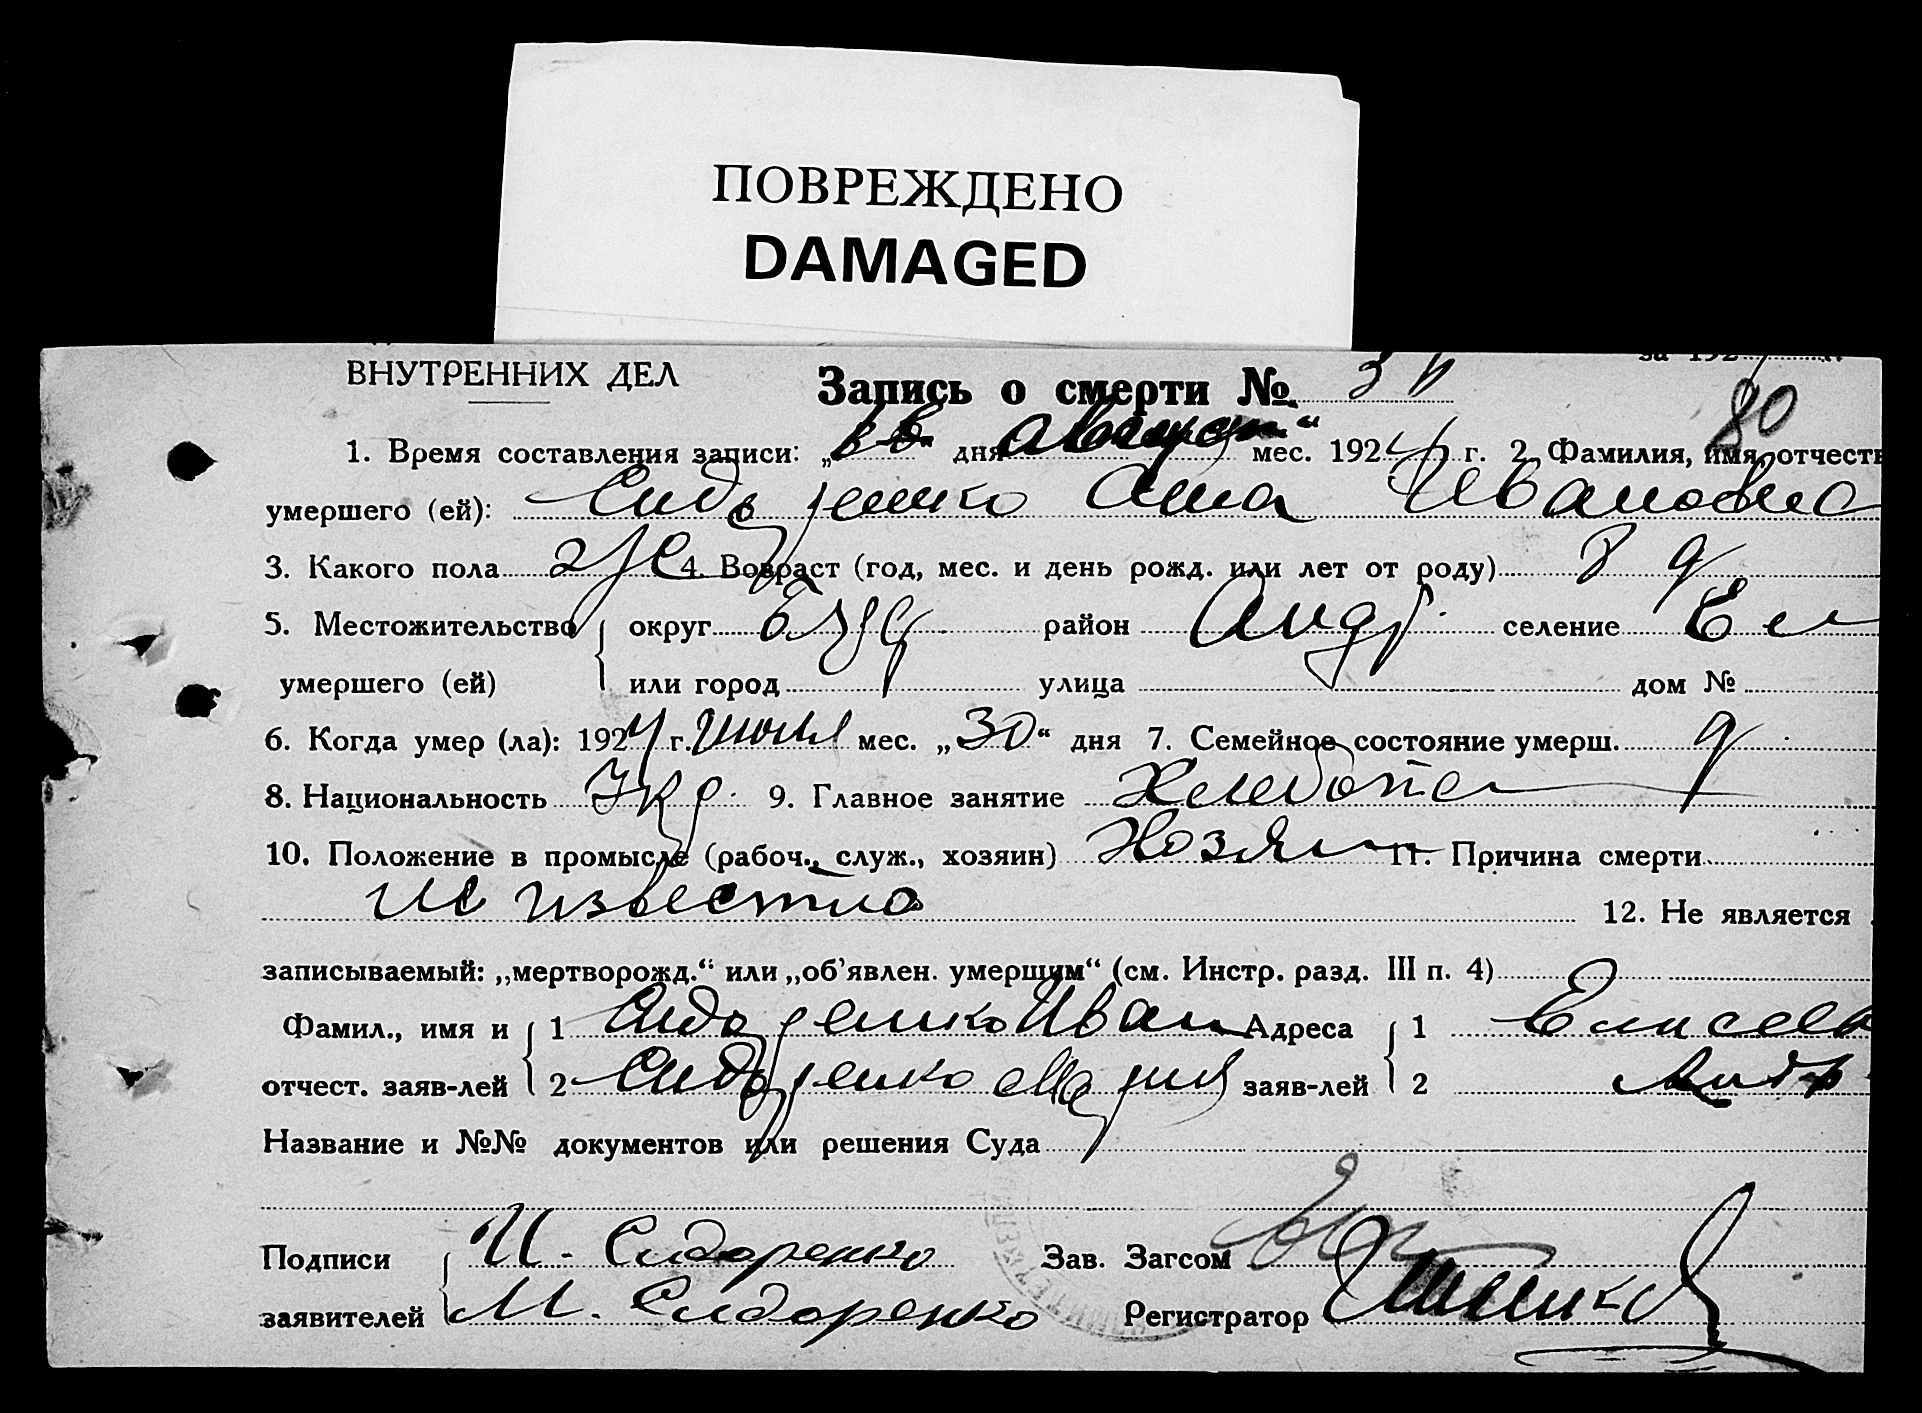 ПОВРЕЖДЕНО
DAMAGED
ВНУТРЕННИХ ДЕЛ
за 192
Запись о смерти №
80
1. Время составления записи: „ “ дня август “ мес. 1924 г. 2. Фамилия, имя, отчеств
умершего (ей): Сидоренко Анна Ивановна
3. Какого пола же 4. Возраст (год, мес. и день рожд. или лет от роду) 8
5. Местожительство округ район Андр. селение Ел
умершего (ей) или город улица дом №
6. Когда умер (ла): 1924 г. июля мес. „30“ дня 7. Семейное состояние умерш. д
8. Национальность Укр. 9. Главное занятие Хлебопа
10. Положение в промысле (рабоч., служ., хозяин) Хозяин 11. Причина смерти
не известно 12. Не является
записываемый: „мертворожд.“ или „об’явлен. умершим“ (см. Инстр. разд. III п. 4)
Фамил., имя и 1 Сидоренко Иван Адреса 1 Елисеев
отчест. заяв-лей 2 Сидоренко Мария заяв-лей 2 Андр
Название и №№ документов или решения Суда
Подписи И. Сидоренко Зав. Загсом
заявителей М. Сидоренко Регистратор